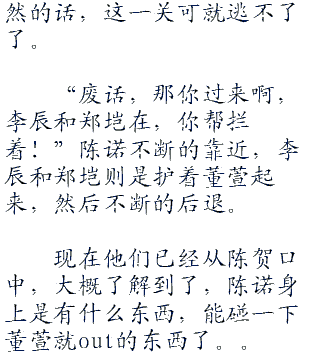 然的话，这一关可就逃不了
了。
“废话，那你过来啊，
李辰和郑垲在，你帮拦
着！”陈诺不断的靠近，李
辰和郑垲则是护着董萱起
来，然后不断的后退。
现在他们已经从陈贺口
中，大概了解到了，陈诺身
上是有什么东西，能碰一下
董萱就out的东西了。。